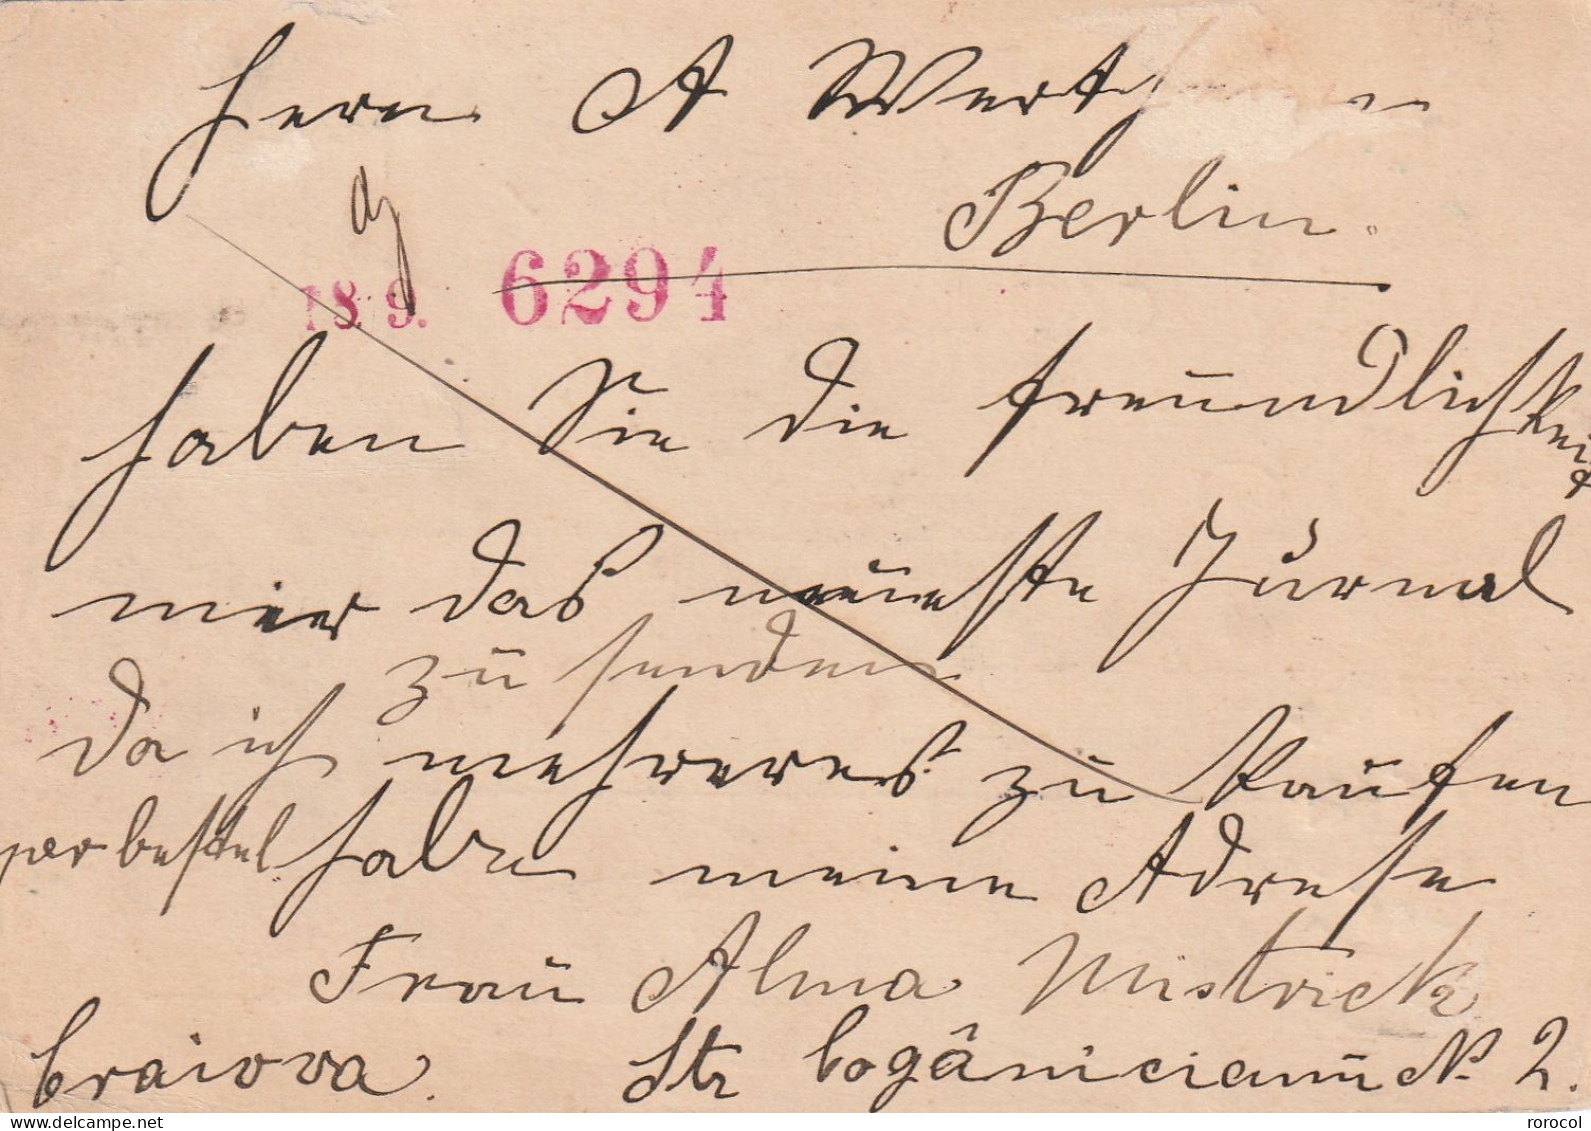 Herrn A Werth
Berlin.
18. 9. 6294
haben Sie die freundlichkeit
mir das neueste Jurnal
zu senden
da ich mehreres zu kaufen
per bestel. habe meine Adresse
Frau Alma Mistrick
Craiova. Str Cogânicianu No. 2.
delcampe.net
rorocol